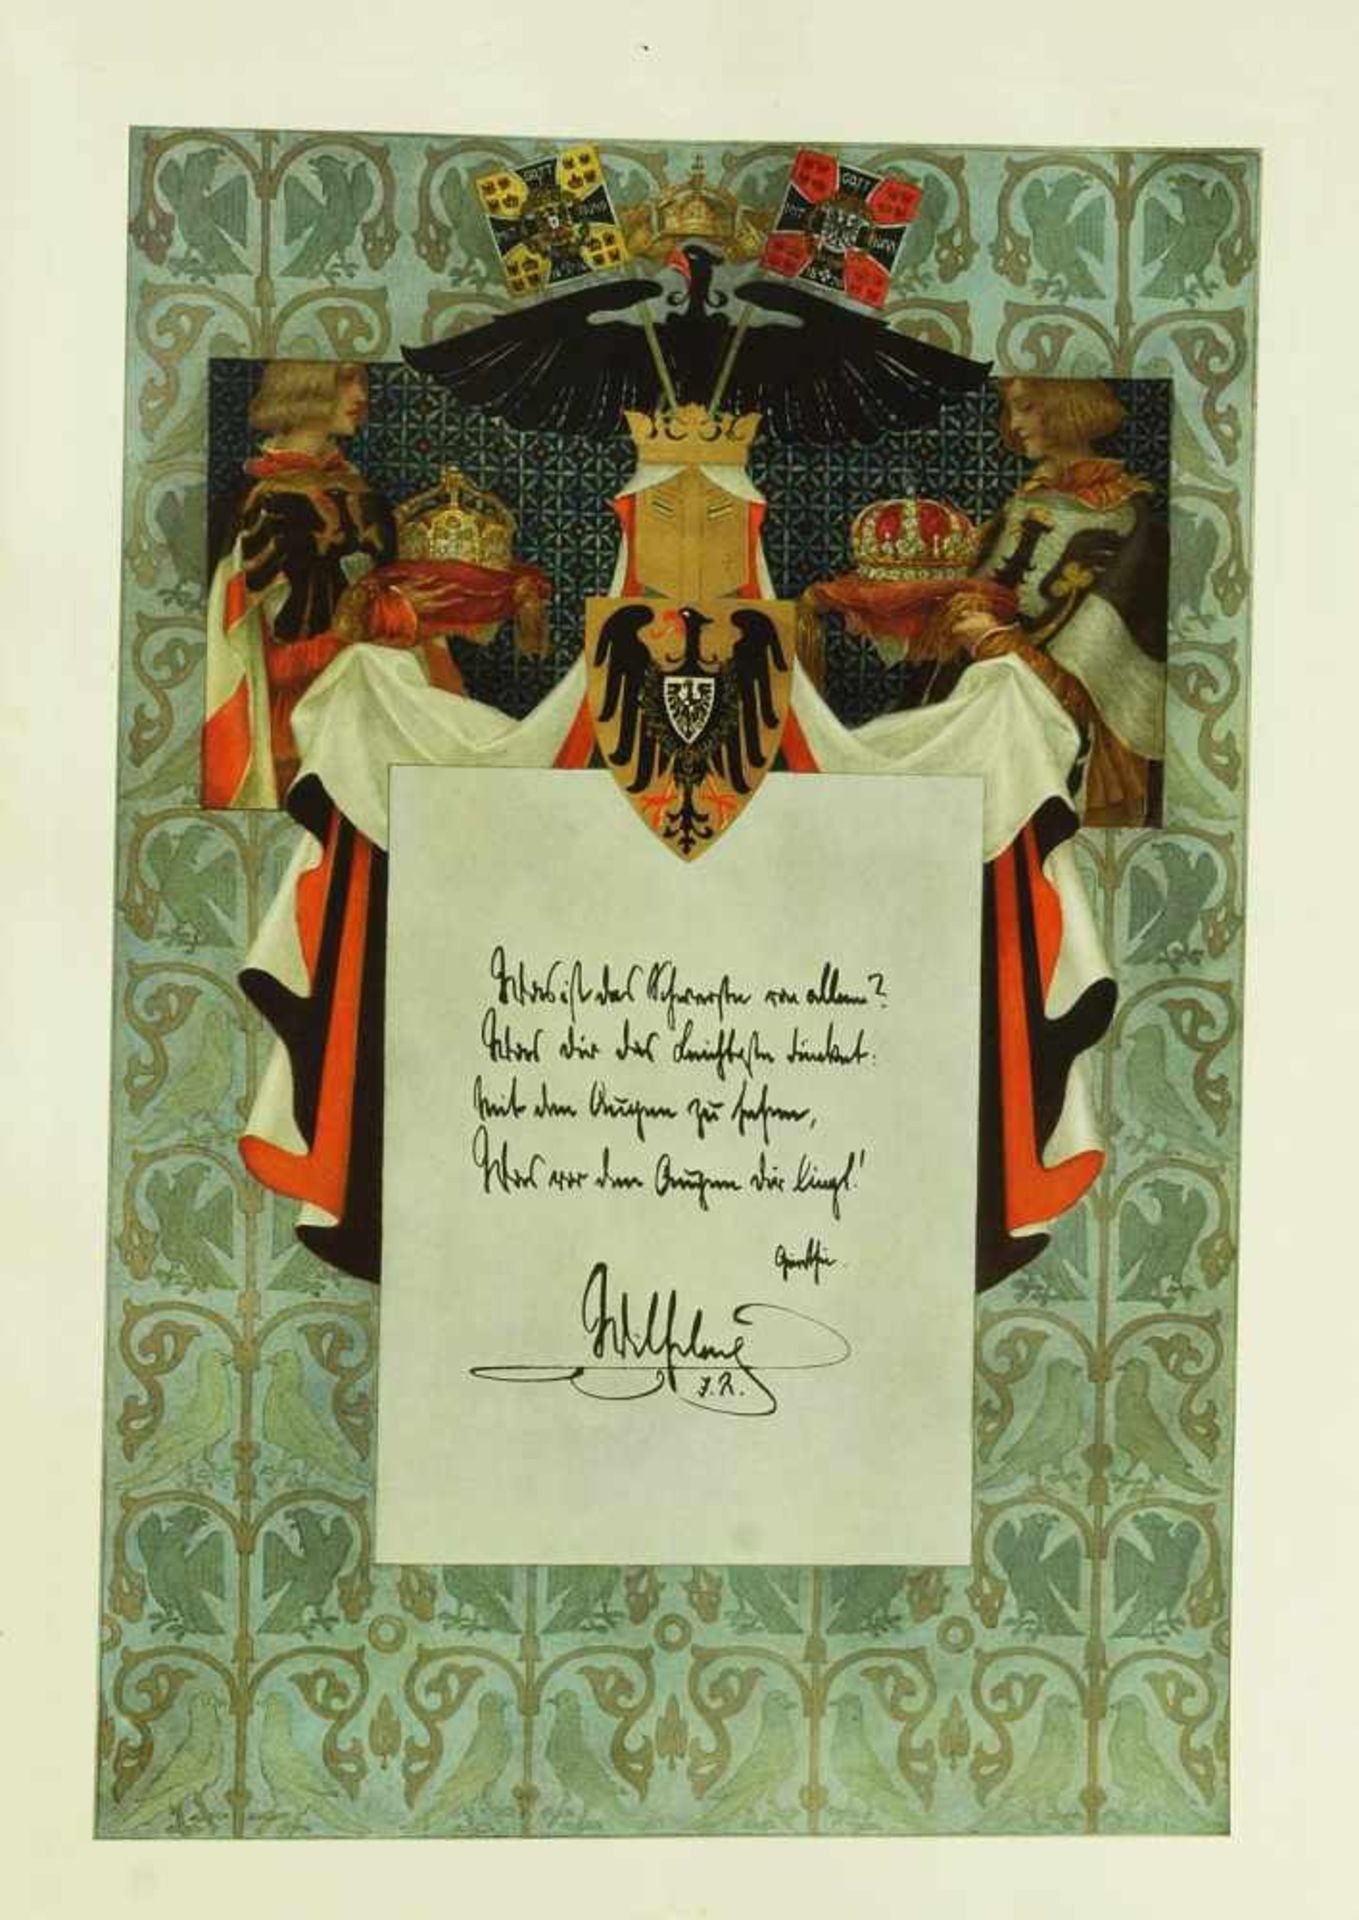 GOTT
MIT
UNS
GOTT
MIT
UNS
Was ist das Schwerste von allem?
Was dir das Leichteste dünket:
Mit den Augen zu sehen,
Was vor den Augen dir liegt!
Goethe.
Wilhelm
I. R.